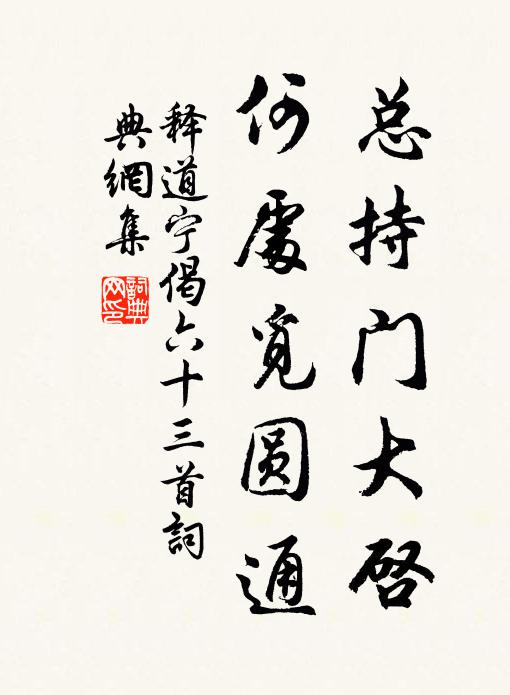 总持门大启
何處觅圆通
释道宁偈六十三首詞
典網集
詞典
网印